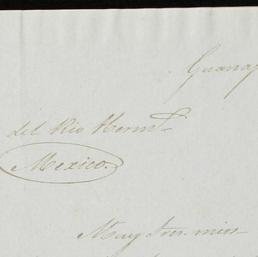 Guanaj
del Rio Herm
Mexico.
Muy Sres. mios